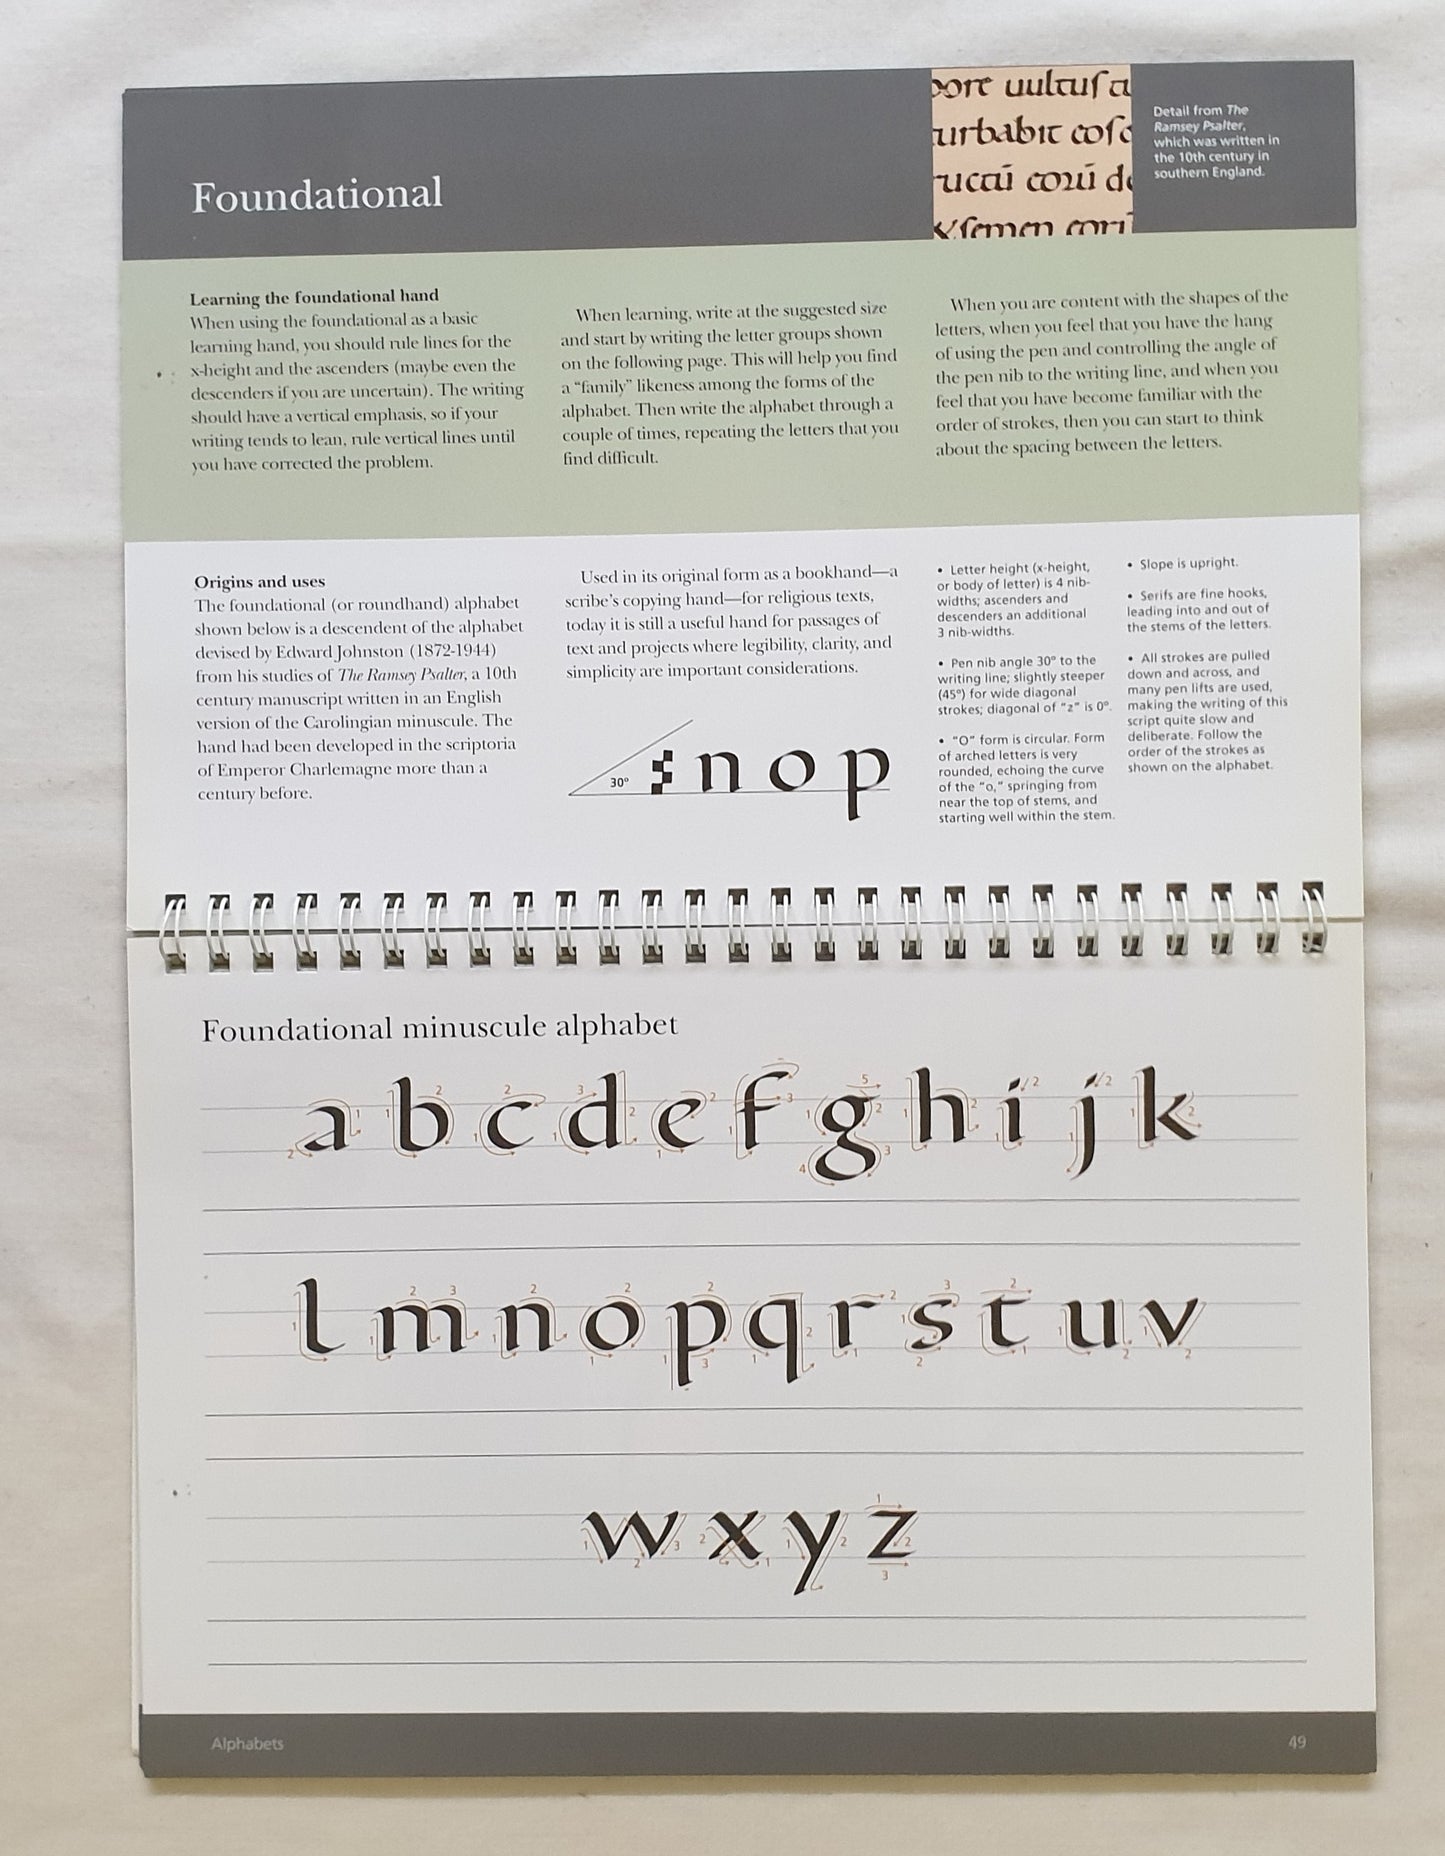 Foundational
Detail from The
Ramsey Psalter,
which was written in
the 10th century in
southern England.
Learning the foundational hand
When using the foundational as a basic
learning hand, you should rule lines for the
x-height and the ascenders (maybe even the
descenders if you are uncertain). The writing
should have a vertical emphasis, so if your
writing tends to lean, rule vertical lines until
you have corrected the problem.
When learning, write at the suggested size
and start by writing the letter groups shown
on the following page. This will help you find
a “family” likeness among the forms of the
alphabet. Then write the alphabet through a
couple of times, repeating the letters that you
find difficult.
When you are content with the shapes of the
letters, when you feel that you have the hang
of using the pen and controlling the angle of
the pen nib to the writing line, and when you
feel that you have become familiar with the
order of strokes, then you can start to think
about the spacing between the letters.
Origins and uses
The foundational (or roundhand) alphabet
shown below is a descendent of the alphabet
devised by Edward Johnston (1872-1944)
from his studies of The Ramsey Psalter, a 10th
century manuscript written in an English
version of the Carolingian minuscule. The
hand had been developed in the scriptoria
of Emperor Charlemagne more than a
century before.
Used in its original form as a bookhand—a
scribe’s copying hand—for religious texts,
today it is still a useful hand for passages of
text and projects where legibility, clarity, and
simplicity are important considerations.
30° n o p
• Letter height (x-height,
or body of letter) is 4 nib-
widths; ascenders and
descenders an additional
3 nib-widths.
• Pen nib angle 30° to the
writing line; slightly steeper
(45°) for wide diagonal
strokes; diagonal of “z” is 0°.
• “O” form is circular. Form
of arched letters is very
rounded, echoing the curve
of the “o,” springing from
near the top of stems, and
starting well within the stem.
• Slope is upright.
• Serifs are fine hooks,
leading into and out of
the stems of the letters.
• All strokes are pulled
down and across, and
many pen lifts are used,
making the writing of this
script quite slow and
deliberate. Follow the
order of the strokes as
shown on the alphabet.
Foundational minuscule alphabet
a b c d e f g h i j k
l m n o p q r s t u v
w x y z
Alphabets
49